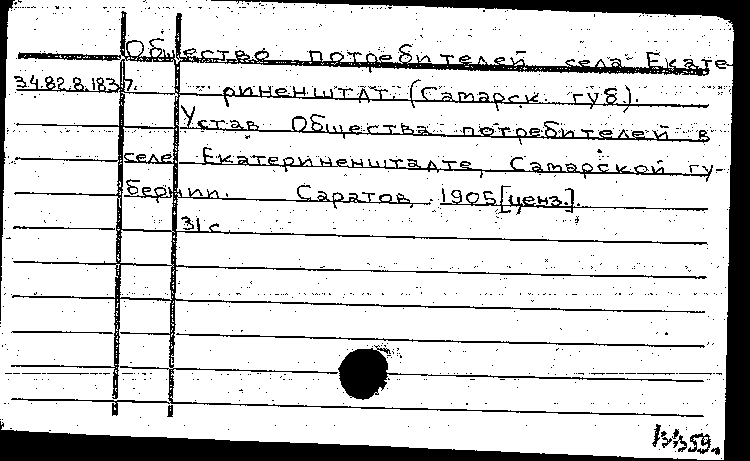 Общество потребителей села Екате
34.82.8.1837. риненштдт. (Самарск. губ.).
Устав Общества потребителей в
селе Екатериненштадте, Самарской гу-
бернии. Саратов, 1905 [ценз.].
31 с